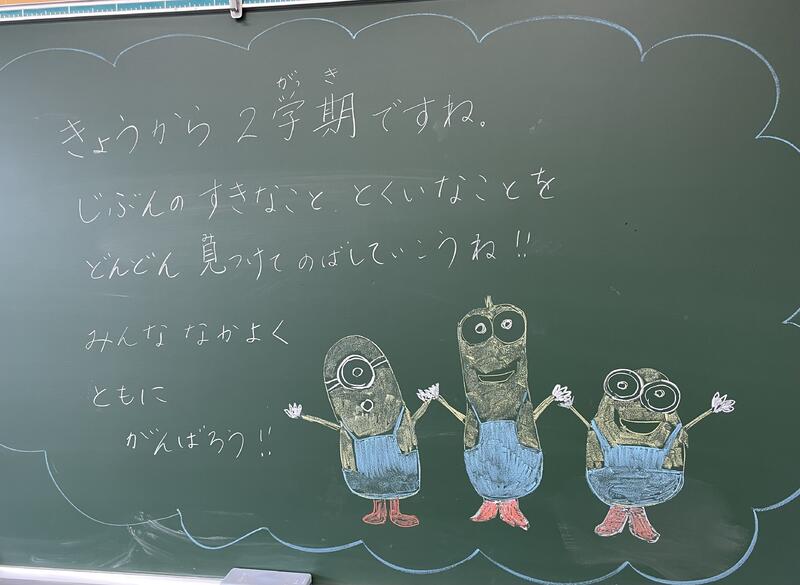 きょうから 2学期ですね。
じぶんの すきなこと、とくいなことを
どんどん 見つけて のばしていこうね!!
みんな なかよく
ともに
がんばろう!!